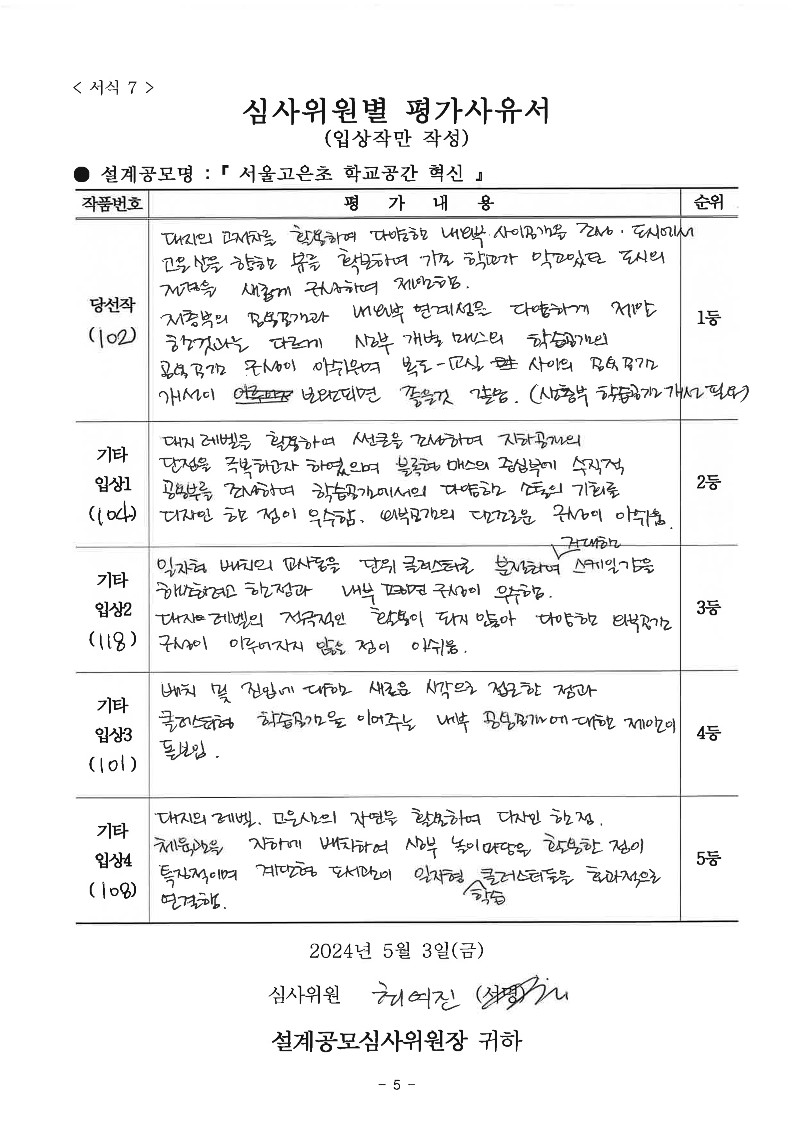 < 서식 7 >
심사위원별 평가사유서
(입상작만 작성)
● 설계공모명 : 『 서울고은초 학교공간 혁신 』
작품번호 평 가 내 용 순위
당선작
(102)
대지의 고저차를 활용하여 다양한 내외부 사이공간을 조성. 도시에서
고은산을 향한 뷰를 확보하여 기존 학교가 막고있던 도시의
지경을 새롭게 구성하여 제안함.
저층부의 공용공간과 내외부 연계성을 다양하게 제안
한것과는 다르게 상부 개별 매스의 학습공간의
공용공간 구성이 아쉬우며 복도-교실 사이의 공용공간
개선이 보완되면 좋을것 같음. (상층부 학습공간 개선 필요)
1등
기타
입상1
(104)
대지 레벨을 활용하여 썬큰을 조성하여 지하공간의
단점을 극복하고자 하였으며 블록형 매스의 중심부에 수직적
공용부를 조성하여 학습공간에서의 다양한 소통의 기회를
디자인 한 점이 우수함. 외부공간의 단조로운 구성이 아쉬움.
2등
기타
입상2
(118)
일자형 배치의 교사동을 단위 클러스터로 분절하여 거대한 스케일감을
해소하려고 한점과 내부 평면 구성이 우수함.
대지 레벨의 적극적인 활용이 되지 않아 다양한 외부공간
구성이 이루어지지 않은 점이 아쉬움.
3등
기타
입상3
(101)
배치 및 진입에 대한 새로운 시각으로 접근한 점과
클러스터형 학습공간을 이어주는 내부 공용공간에 대한 제안이
돋보임.
4등
기타
입상4
(108)
대지의 레벨, 고은산의 자연을 활용하여 디자인 한 점.
체육관을 지하에 배치하여 상부 놀이마당을 활용한 점이
특징적이며 계단형 도서관이 일자형 학습 클러스터들을 효과적으로
연결함.
5등
2024년 5월 3일(금)
심사위원 최여진 (서명)
설계공모심사위원장 귀하
- 5 -